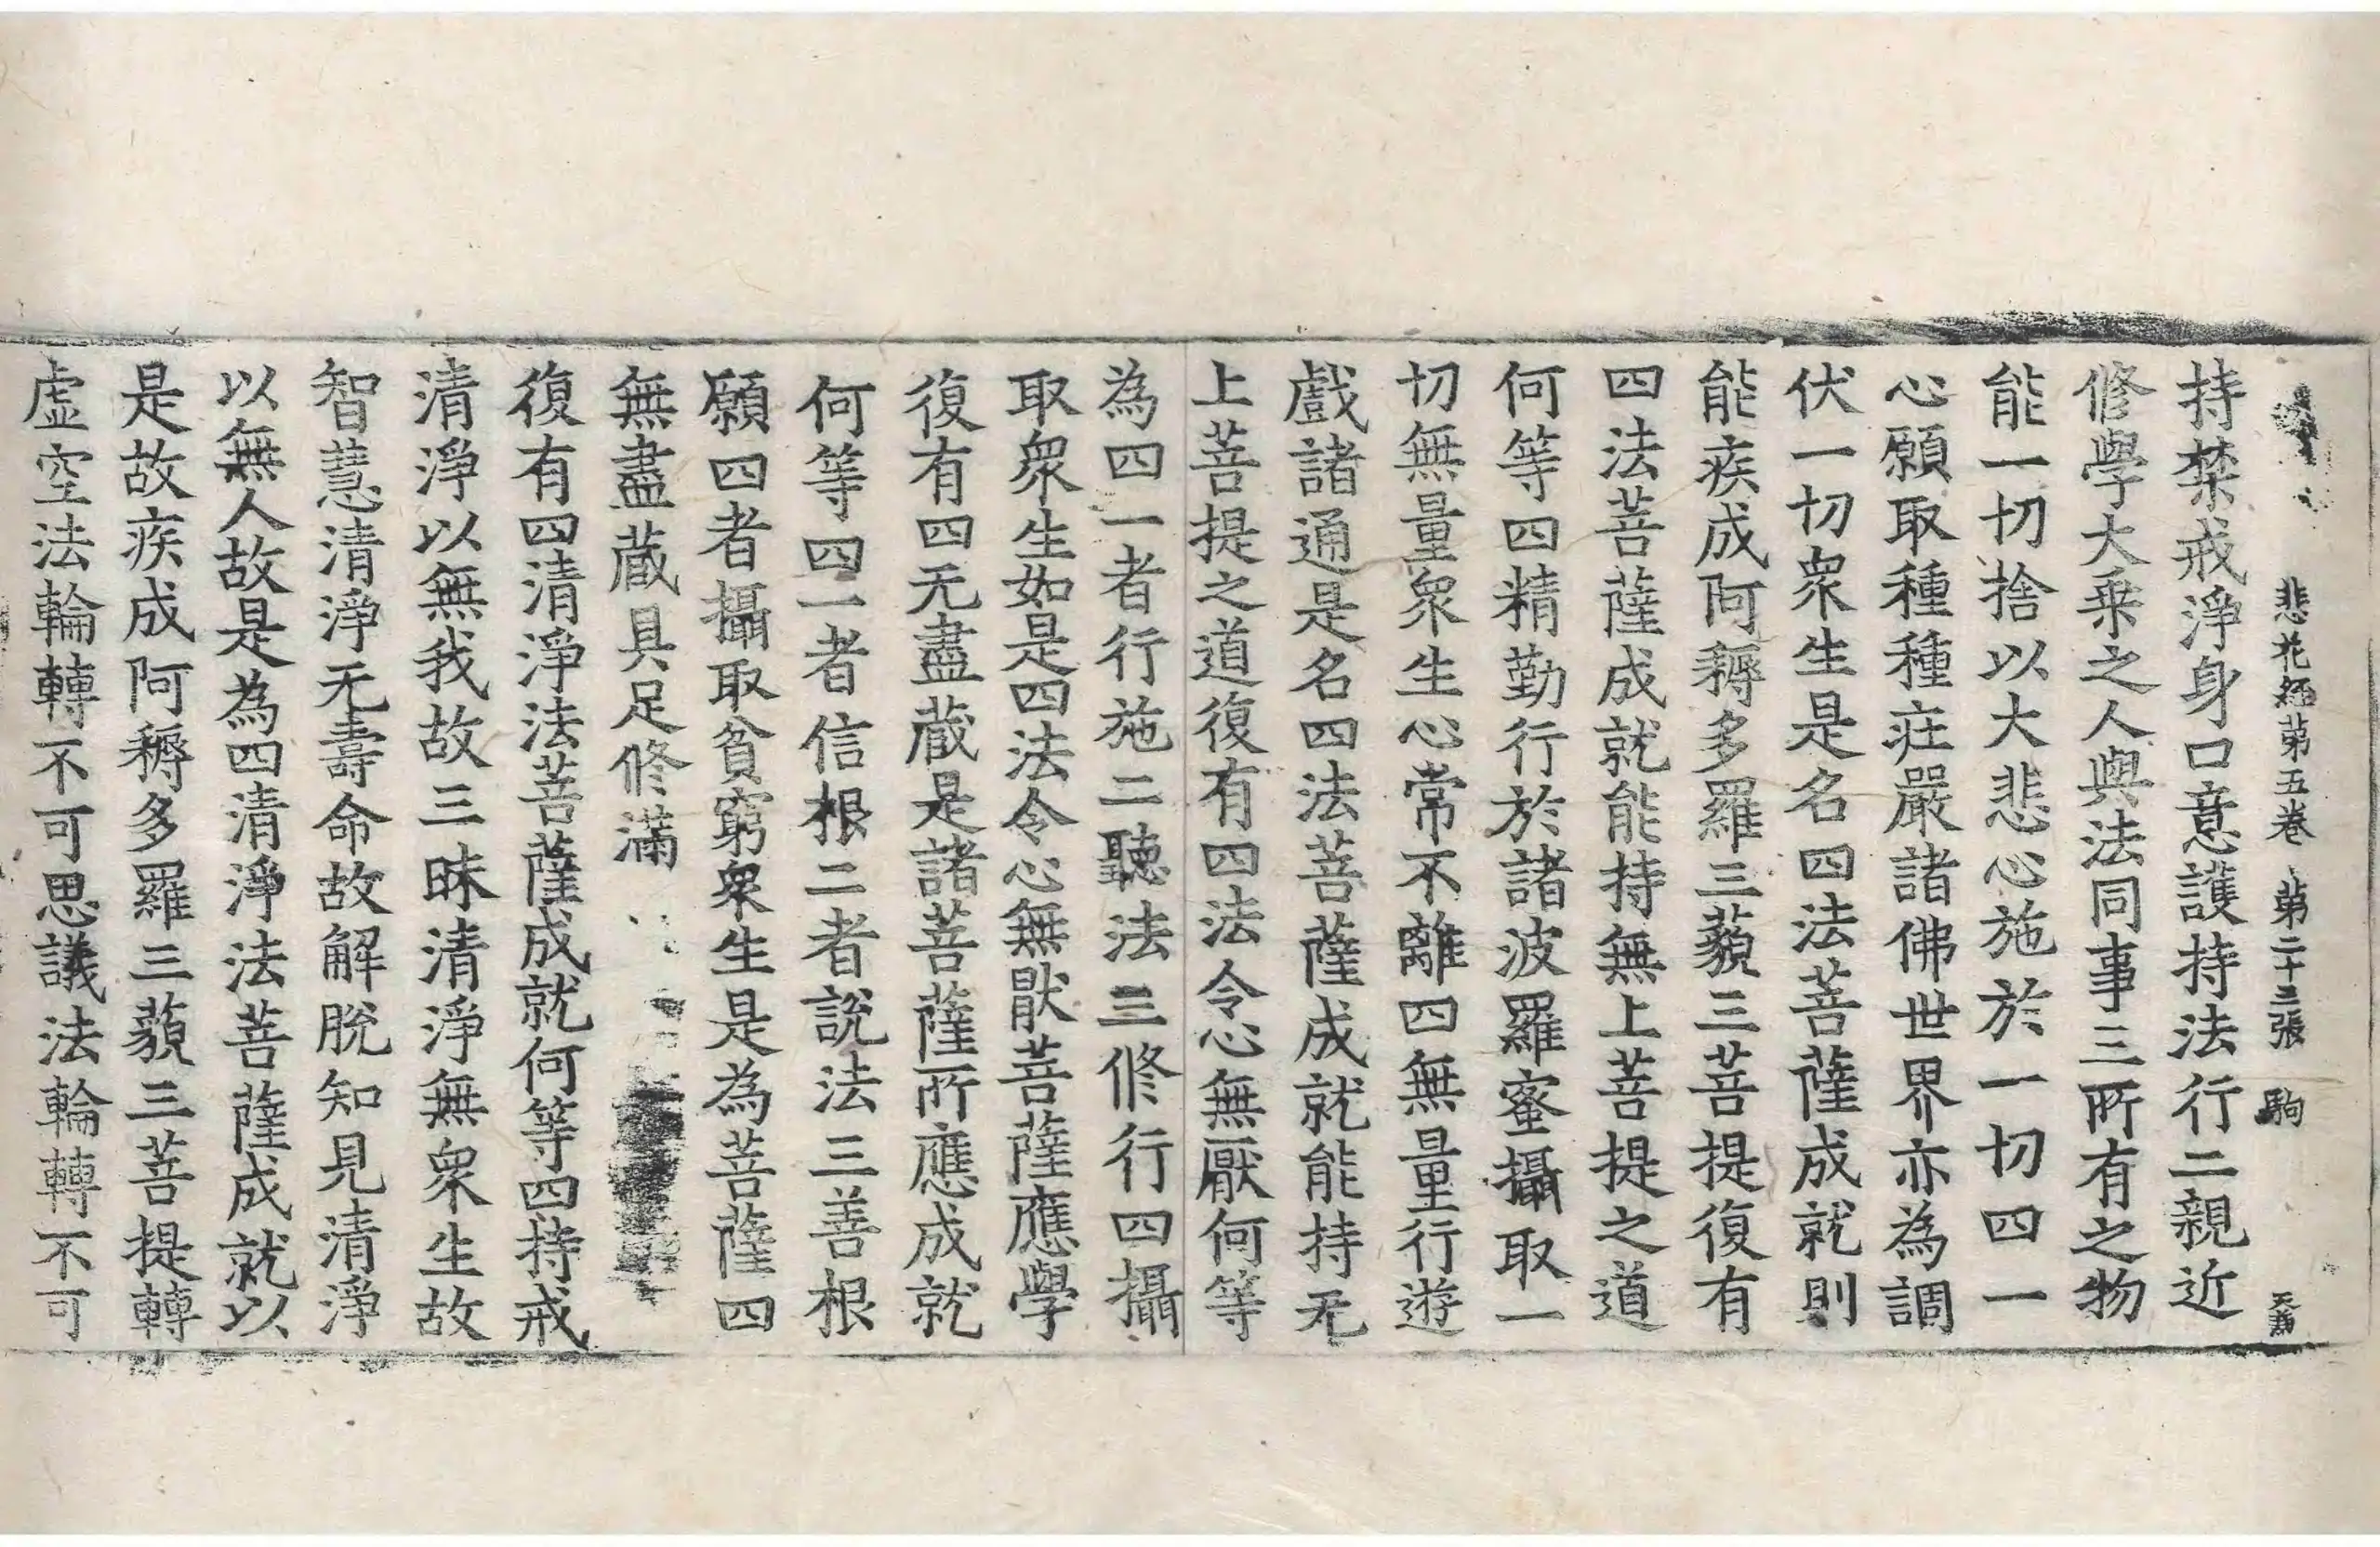 悲花經第五卷 第二十三張 駒
持禁戒淨身口意護持法行二親近
修學大乘之人與法同事三所有之物
能一切捨以大悲心施於一切四一
心願取種種莊嚴諸佛世界亦為調
伏一切衆生是名四法菩薩成就則
能疾成阿耨多羅三藐三菩提復有
四法菩薩成就能持無上菩提之道
何等四精勤行於諸波羅蜜攝取一
切無量衆生心常不離四無量行遊
戲諸通是名四法菩薩成就能持无
上菩提之道復有四法令心無厭何等
為四一者行施二聽法三修行四攝
取衆生如是四法令心無猒菩薩應學
復有四无盡蔵是諸菩薩所應成就
何等四一者信根二者說法三善根
願四者攝取貧窮衆生是為菩薩四
無盡蔵具足修滿
復有四清淨法菩薩成就何等四持戒
清淨以無我故三昧清淨無衆生故
智慧清淨无壽命故解脫知見清淨
以無人故是為四清淨法菩薩成就以
是故疾成阿耨多羅三藐三菩提轉
虛空法輪轉不可思議法輪轉不可